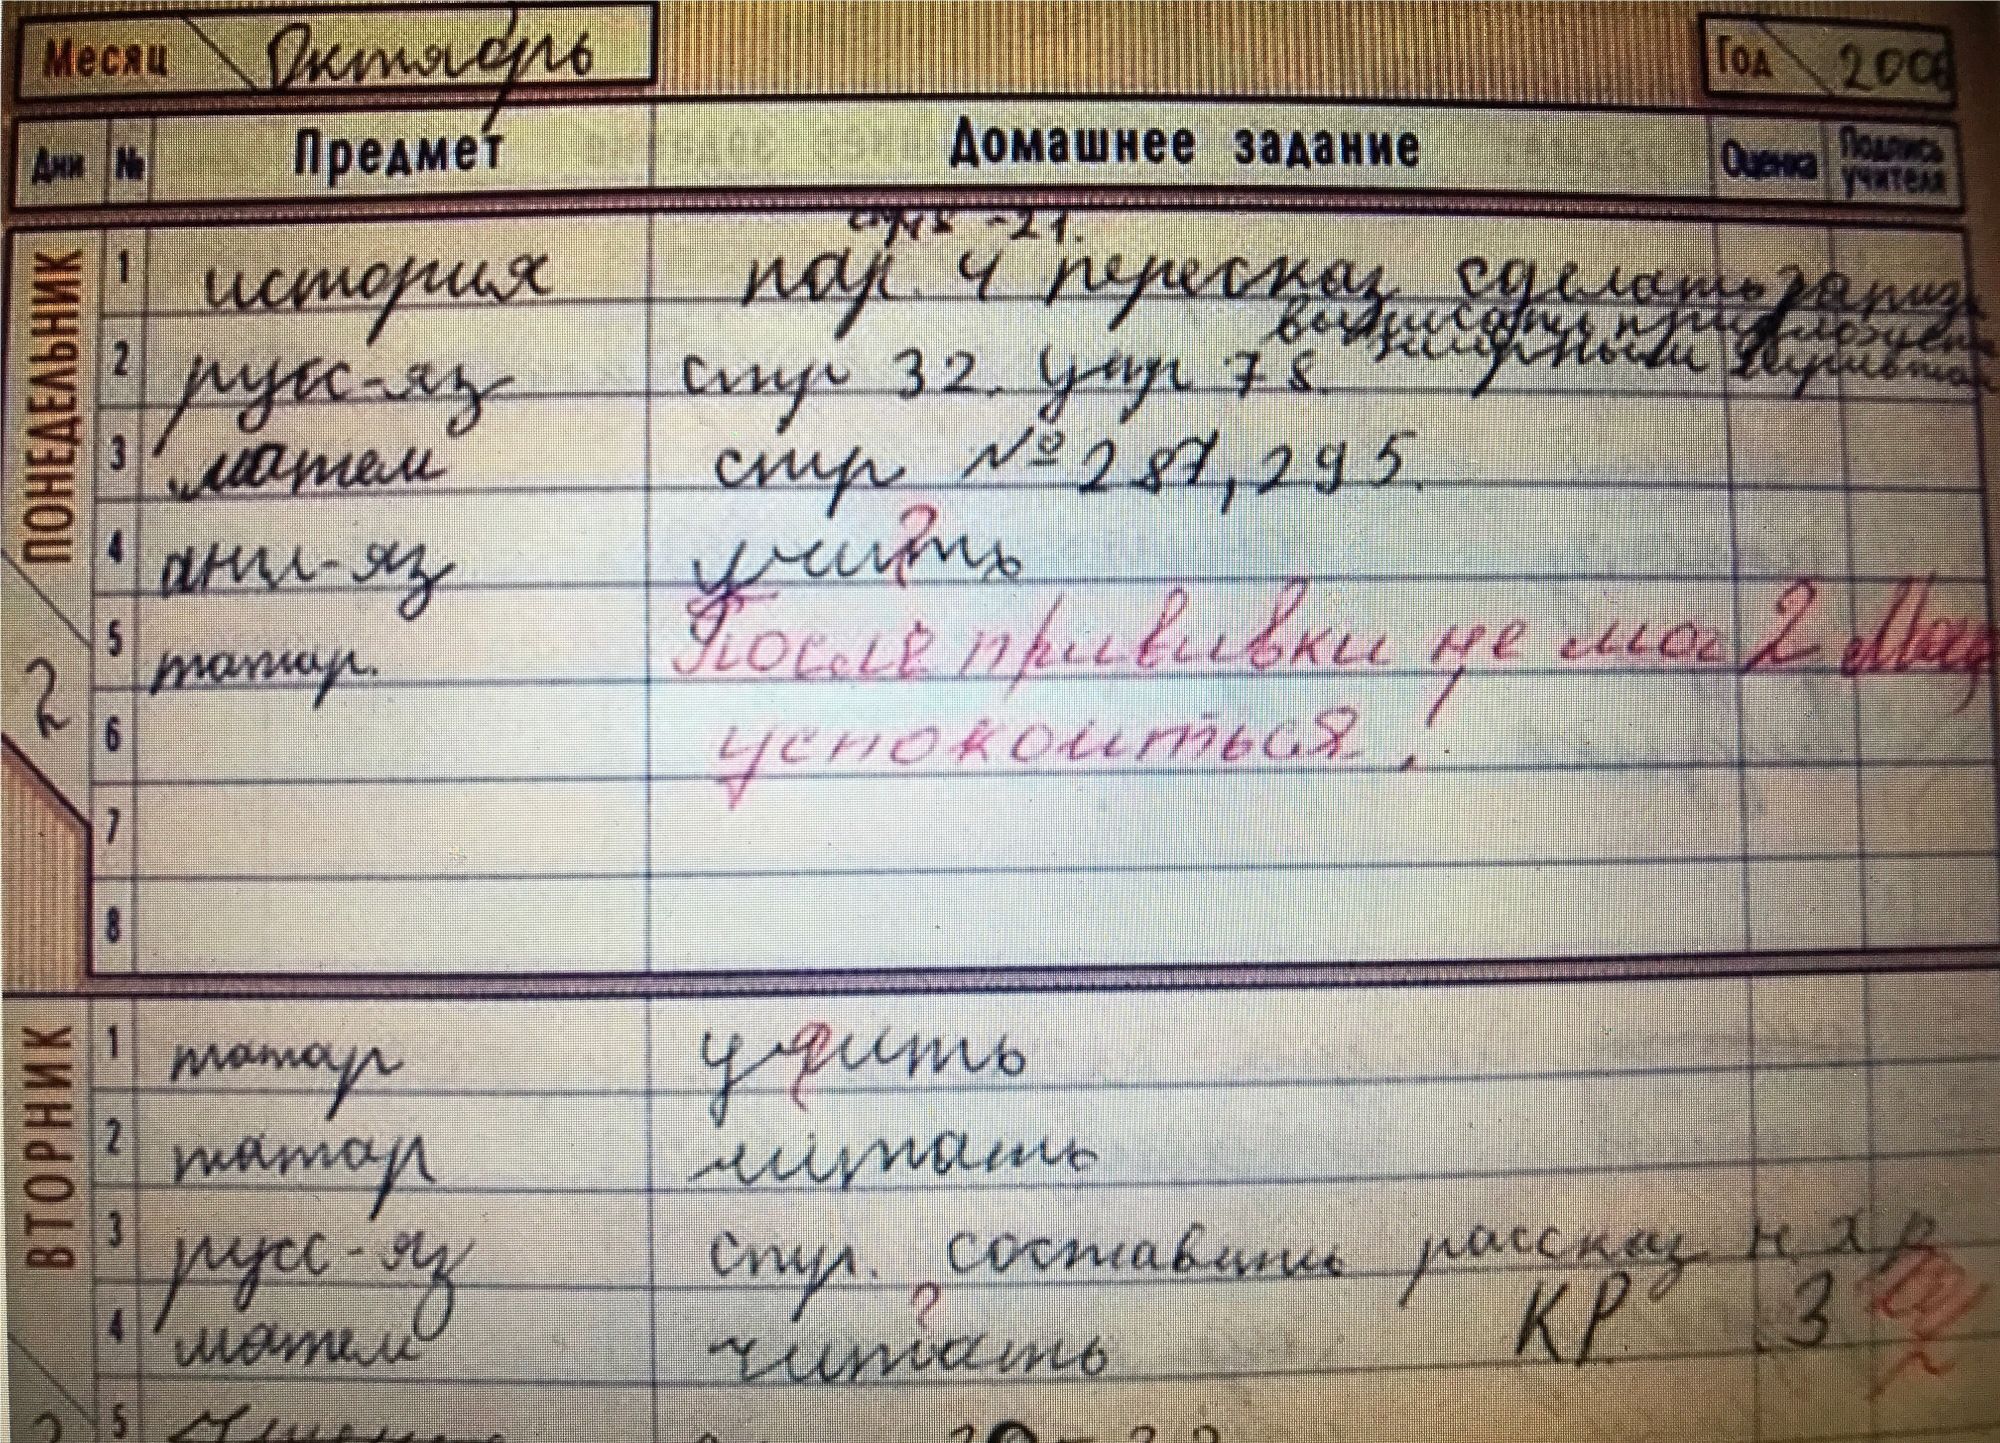 Месяц Октябрь Год 2006
Дни № Предмет Домашнее задание Оценка Подпись учителя
-21.
ПОНЕДЕЛЬНИК
1 история пар. 4 пересказ сделать
2 русс-яз стр 32. упр 78.
3 матем стр № 287, 295.
4 англ-яз учить ?
5 татар. После прививки не мог 2
6 успокоиться!
7
8
2
ВТОРНИК
1 татар учить
2 татар читать
3 русс-яз стр. составить рассказ
4 матем читать ? КР 3
5